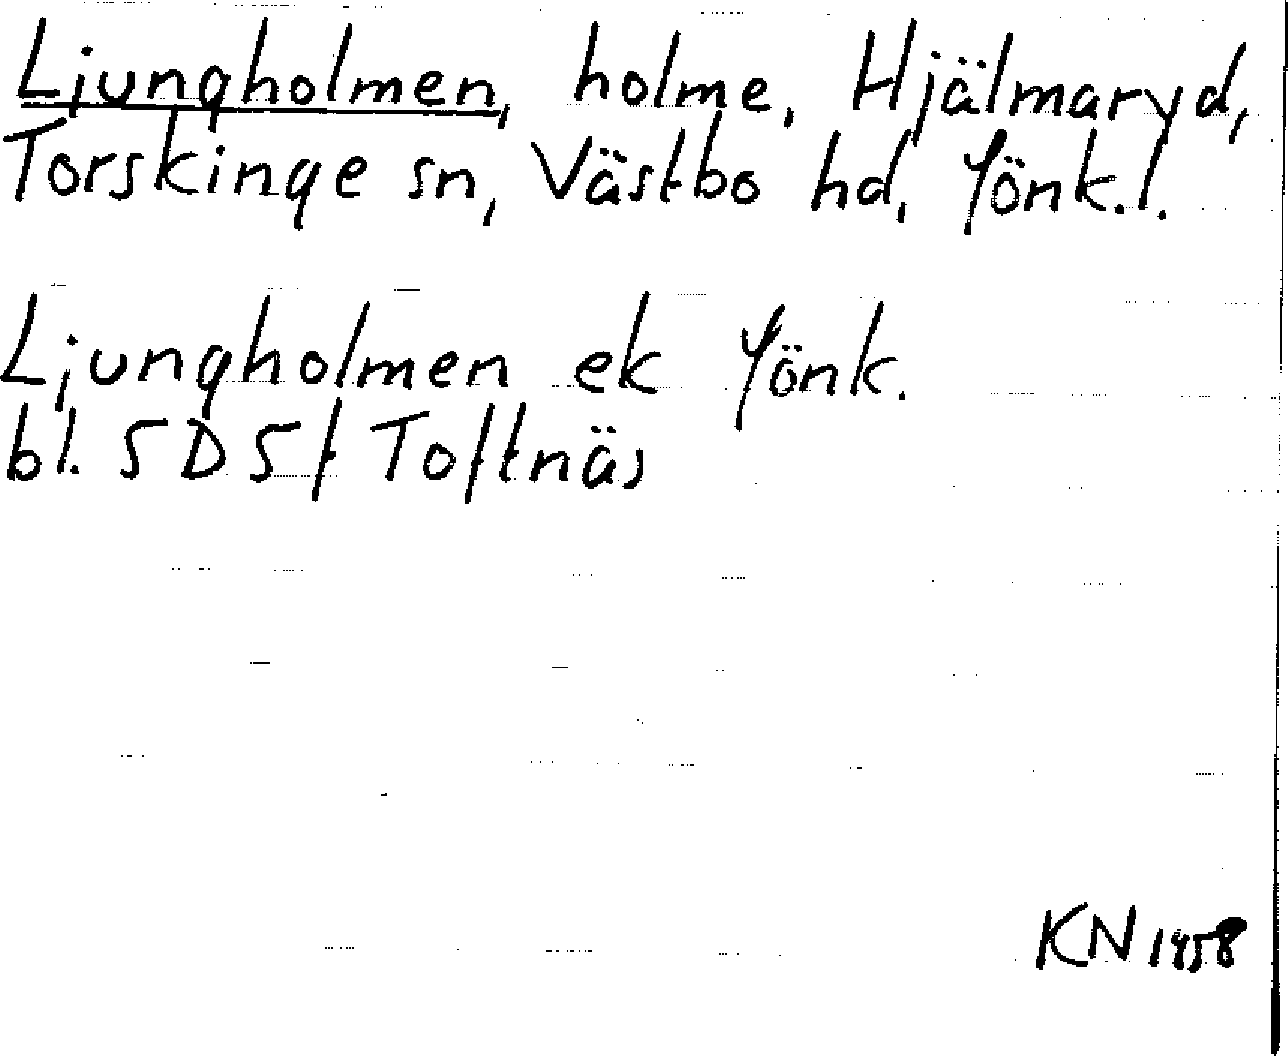 Ljungholmen, holme, Hjälmaryd,
Torskinge sn, Västbo hd, Jönk.l.
Ljungholmen ek Jönk.
bl. 5D5f Toftnäs
KN 1958